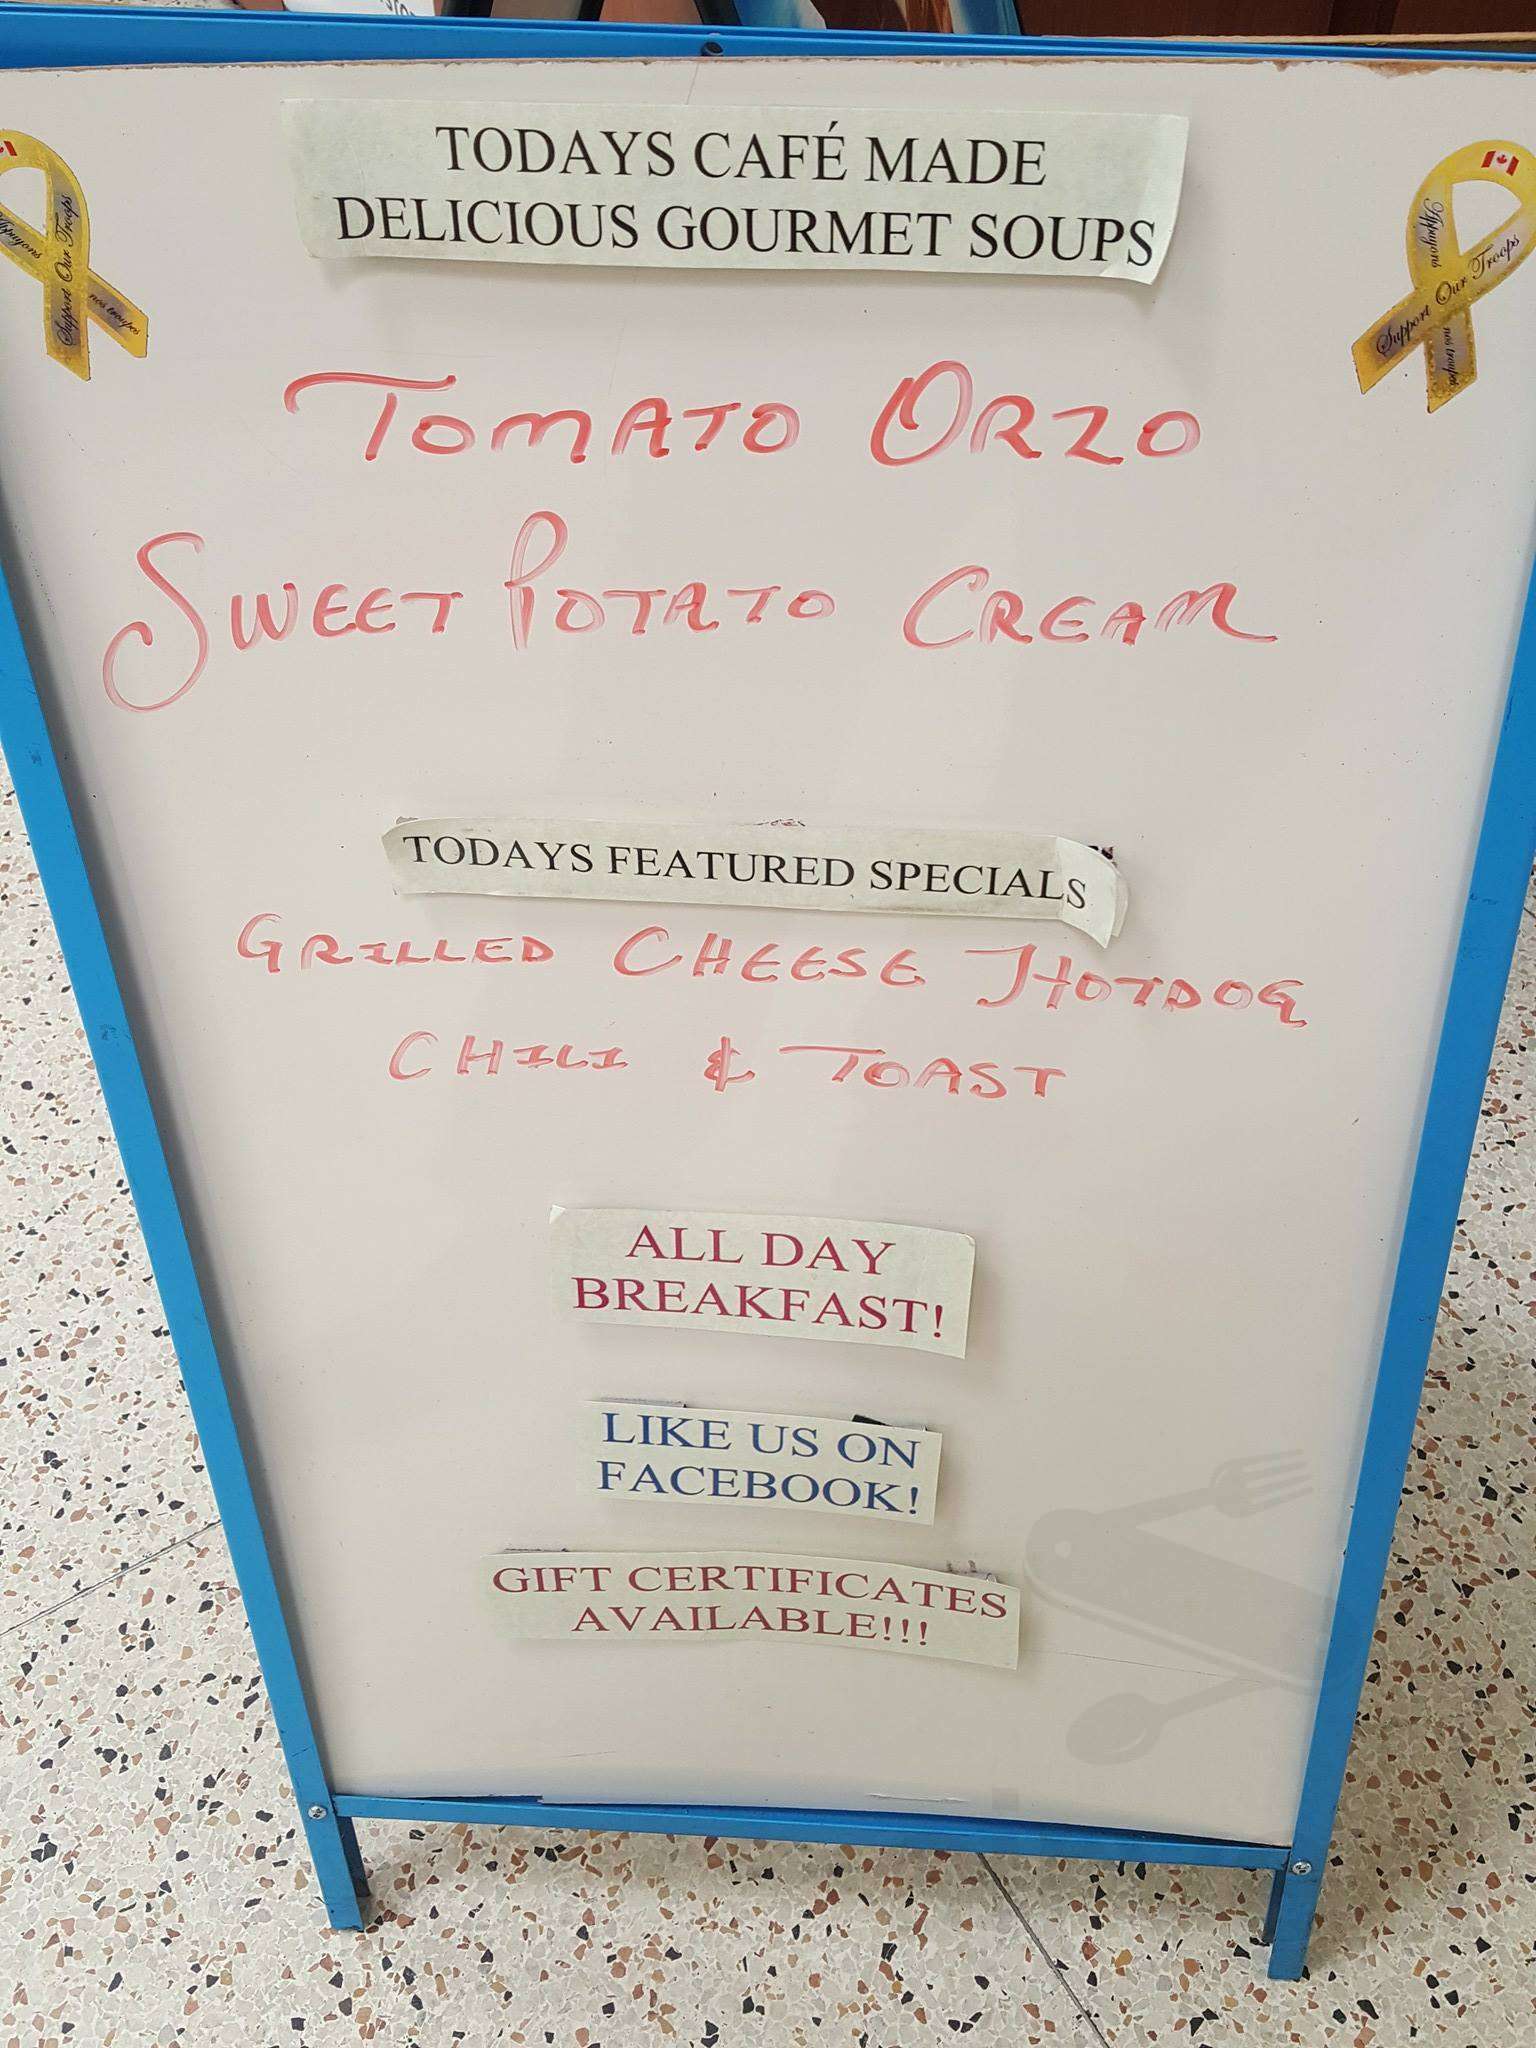 TODAYS CAFÉ MADE
DELICIOUS GOURMET SOUPS
Appuyons
Support Our Troops
nos troupes
Appuyons
Support Our Troops
nos troupes
TOMATO ORZO
SWEET POTATO CREAM
TODAYS FEATURED SPECIALS
GRILLED CHEESE HOTDOG
CHILI & TOAST
ALL DAY
BREAKFAST!
LIKE US ON
FACEBOOK!
GIFT CERTIFICATES
AVAILABLE!!!